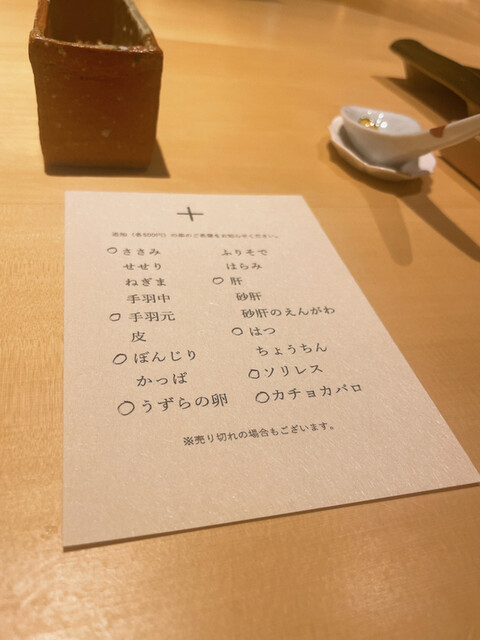 ＋
追加（各500円）の串のご希望をお知らせください。
○ ささみ
せせり
ねぎま
手羽中
○ 手羽元
皮
○ ぼんじり
かっぱ
○ うずらの卵
ふりそで
はらみ
○ 肝
砂肝
砂肝のえんがわ
○ はつ
ちょうちん
○ ソリレス
○ カチョカバロ
※売り切れの場合もございます。